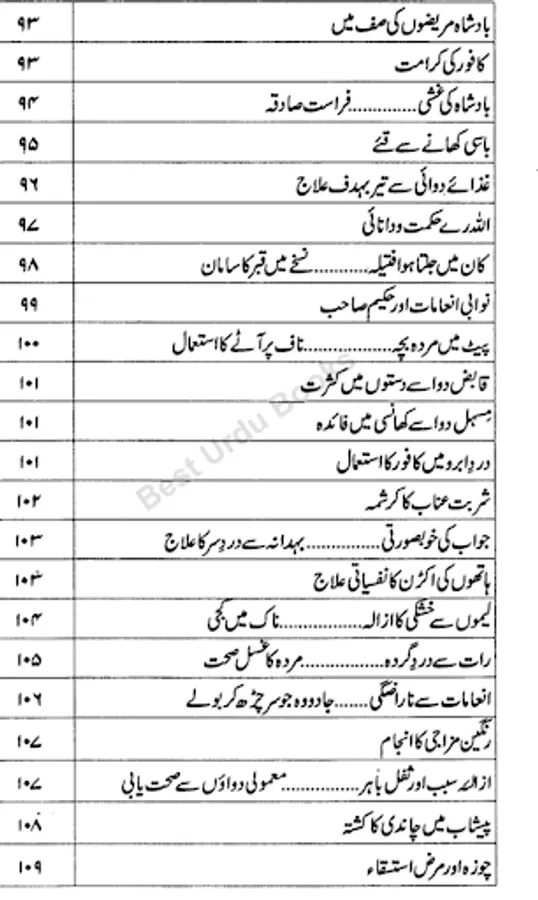 بادشاہ مریضوں کی صف میں ۹۳
کافور کی کرامت ۹۳
بادشاہ کی غشی..............فراست صادقہ ۹۴
باسی کھانے سے قئے ۹۵
غذائے دوائی سے تیر بہدف علاج ۹۶
اللہ رے حکمت و دانائی ۹۷
کان میں جلتا ہوا فتیلہ............نسخے میں قبر کا سامان ۹۸
نوابی انعامات اور حکیم صاحب ۹۹
پیٹ میں مردہ بچہ..................ناف پر آٹے کا استعمال ۱۰۰
قابض دوا سے دستوں میں کثرت ۱۰۱
مسہل دوا سے کھانسی میں فائدہ ۱۰۱
دردِ ابرو میں کافور کا استعمال ۱۰۱
شربت عناب کا کرشمہ ۱۰۲
جواب کی خوبصورتی...............بہدانہ سے دردِ سر کا علاج ۱۰۳
ہاتھوں کی اکڑن کا نفسیاتی علاج ۱۰۳
لیموں سے خشکی کا ازالہ.................ناک میں کجی ۱۰۴
رات سے دردِ گردہ.................مردہ کا غسل صحت ۱۰۵
انعامات سے ناراضگی.......جادو وہ جو سر چڑھ کر بولے ۱۰۶
رنگین مزاجی کا انجام ۱۰۷
ازالۂ سبب اور ثفل باہر................معمولی دواؤں سے صحت یابی ۱۰۷
پیشاب میں چاندی کا کشتہ ۱۰۸
چوزہ اور مرض استسقاء ۱۰۹
Best Urdu Books